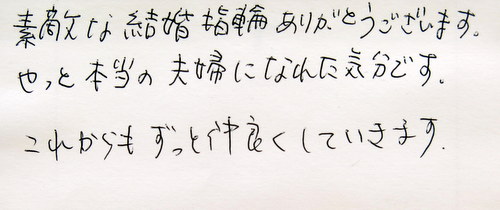 素敵な結婚指輪ありがとうございます。
やっと本当の夫婦になれた気分です。
これからもずっと仲良くしていきます.